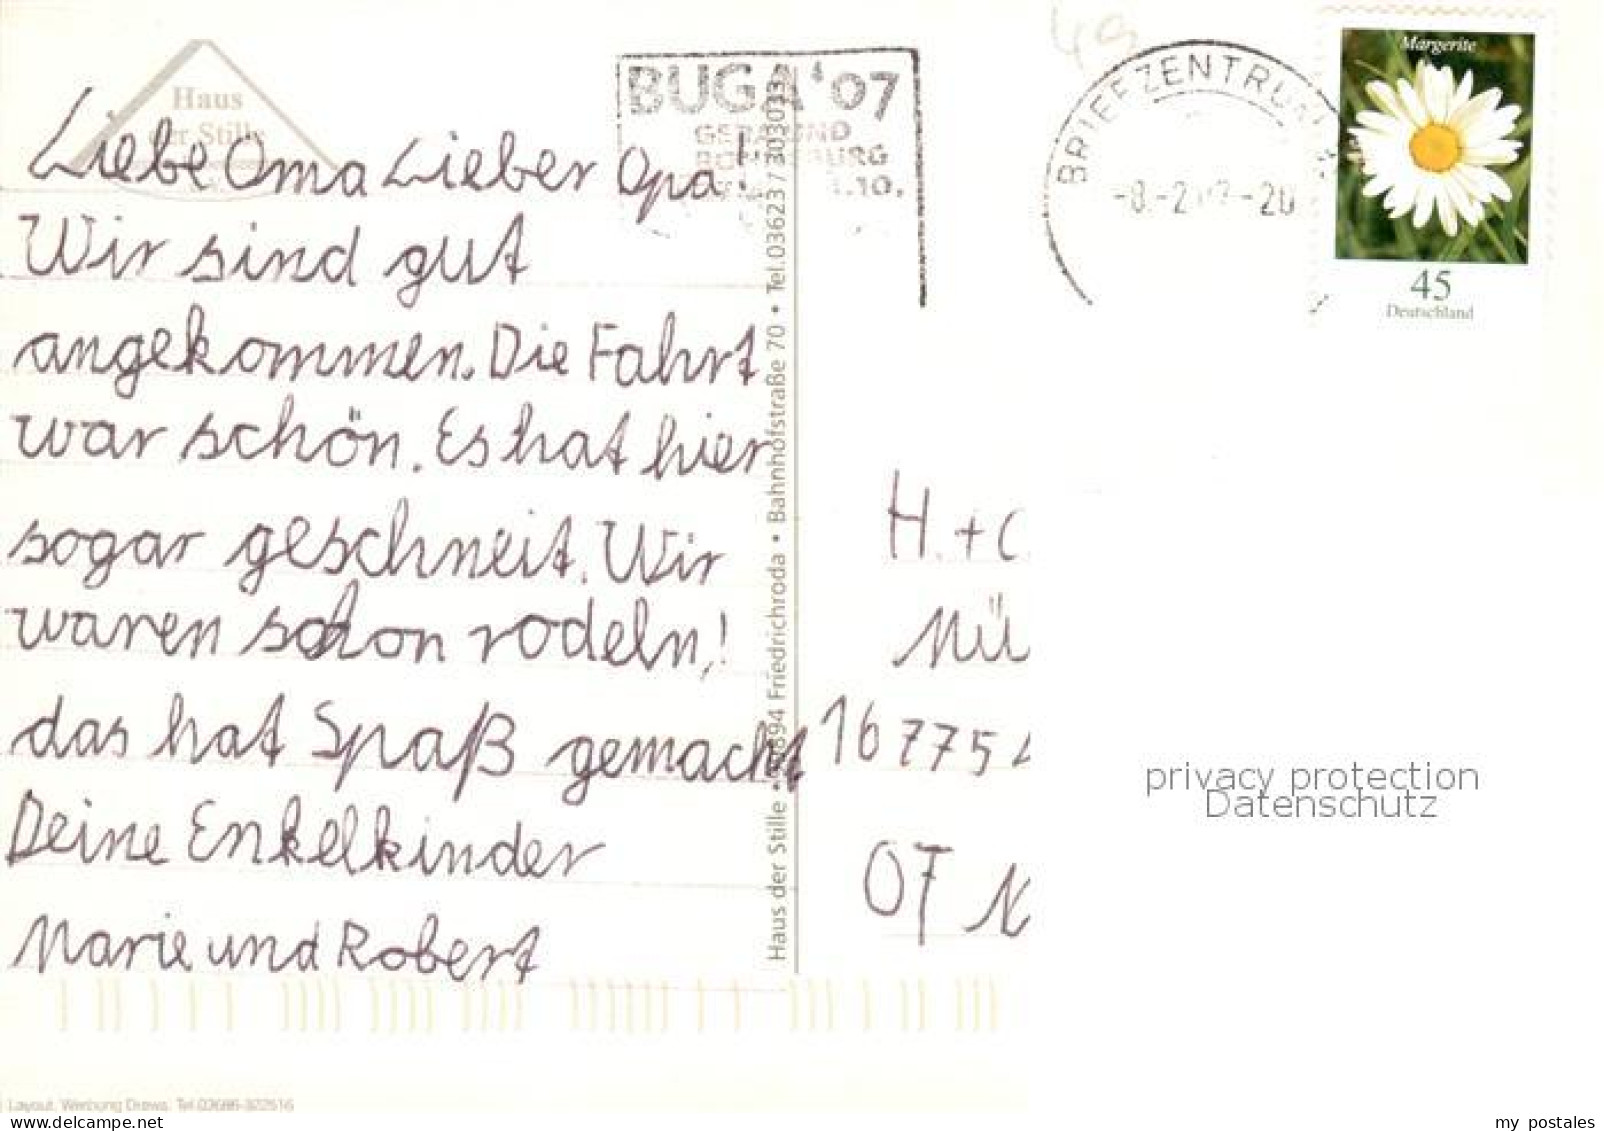 Haus
der Stille
BUGA '07
GERA UND
RONNEBURG
1.10.
BRIEFZENTRUM
49
Margerite
45
Deutschland
Liebe Oma Lieber Opa!
Wir sind gut
angekommen. Die Fahrt
war schön. Es hat hier
sogar geschneit. Wir
waren schon rodeln,!
das hat Spaß gemacht
Deine Enkelkinder
Marie und Robert
Haus der Stille • 99894 Friedrichroda • Bahnhofstraße 70 • Tel.03623 7 303033
H. + C
Mü
16775
OT N
privacy protection
Datenschutz
Layout: Werbung Drews. Tel.03686-322516
my postales